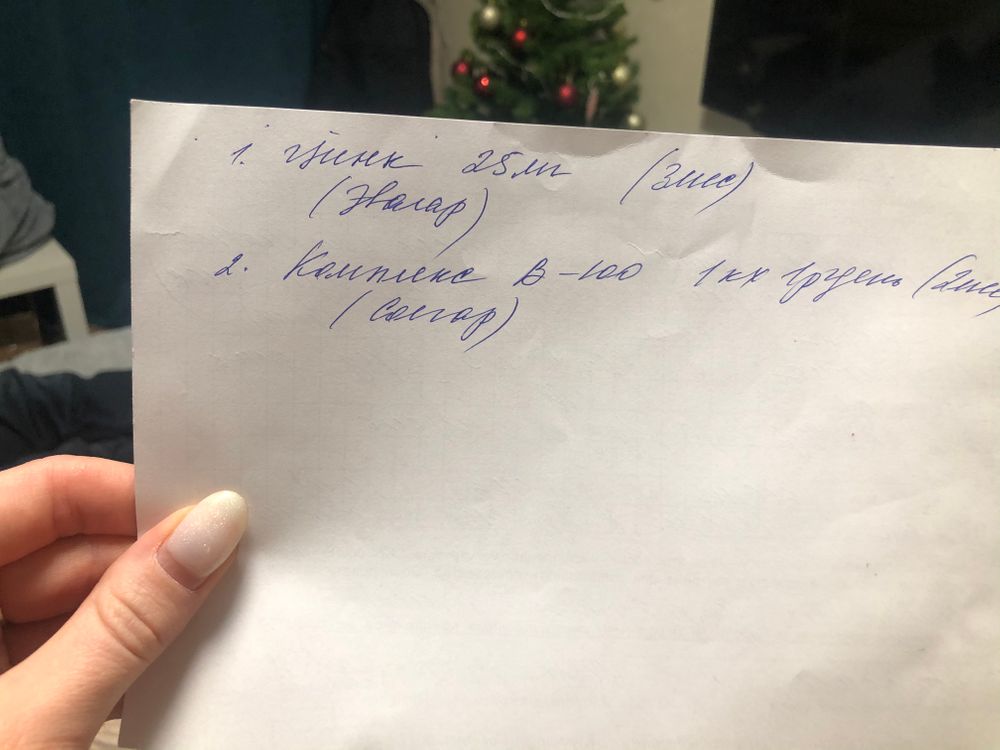 1. Цинк 25 мг (3 мес)
(Эвалар)
2. Комплекс B-100 1к х 1р/день (2 мес)
(Солгар)